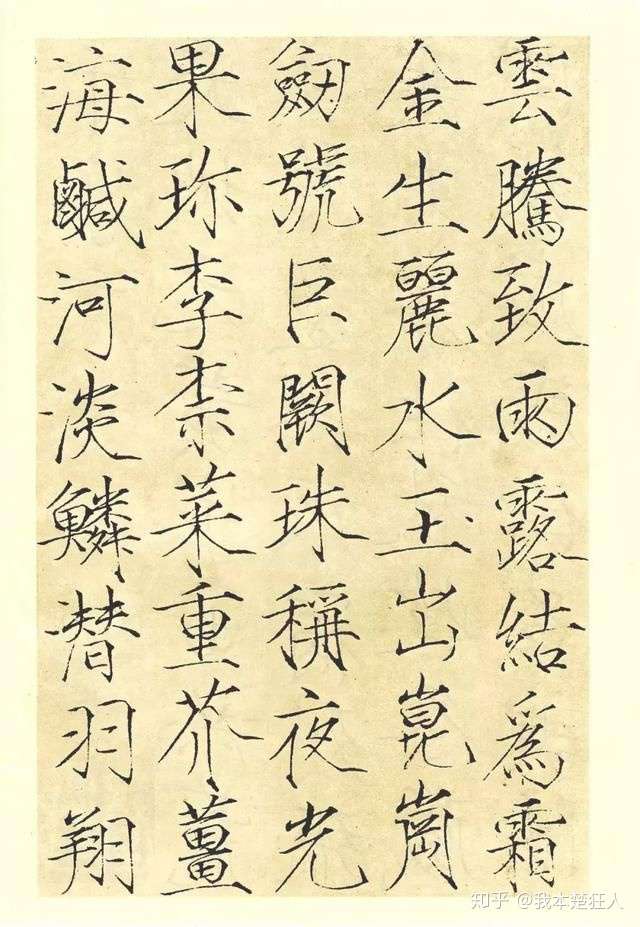 雲騰致雨露結爲霜
金生麗水玉出崑崗
劒號巨闕珠稱夜光
果珎李柰菜重芥薑
海鹹河淡鱗潛羽翔
知乎 @我本楚狂人